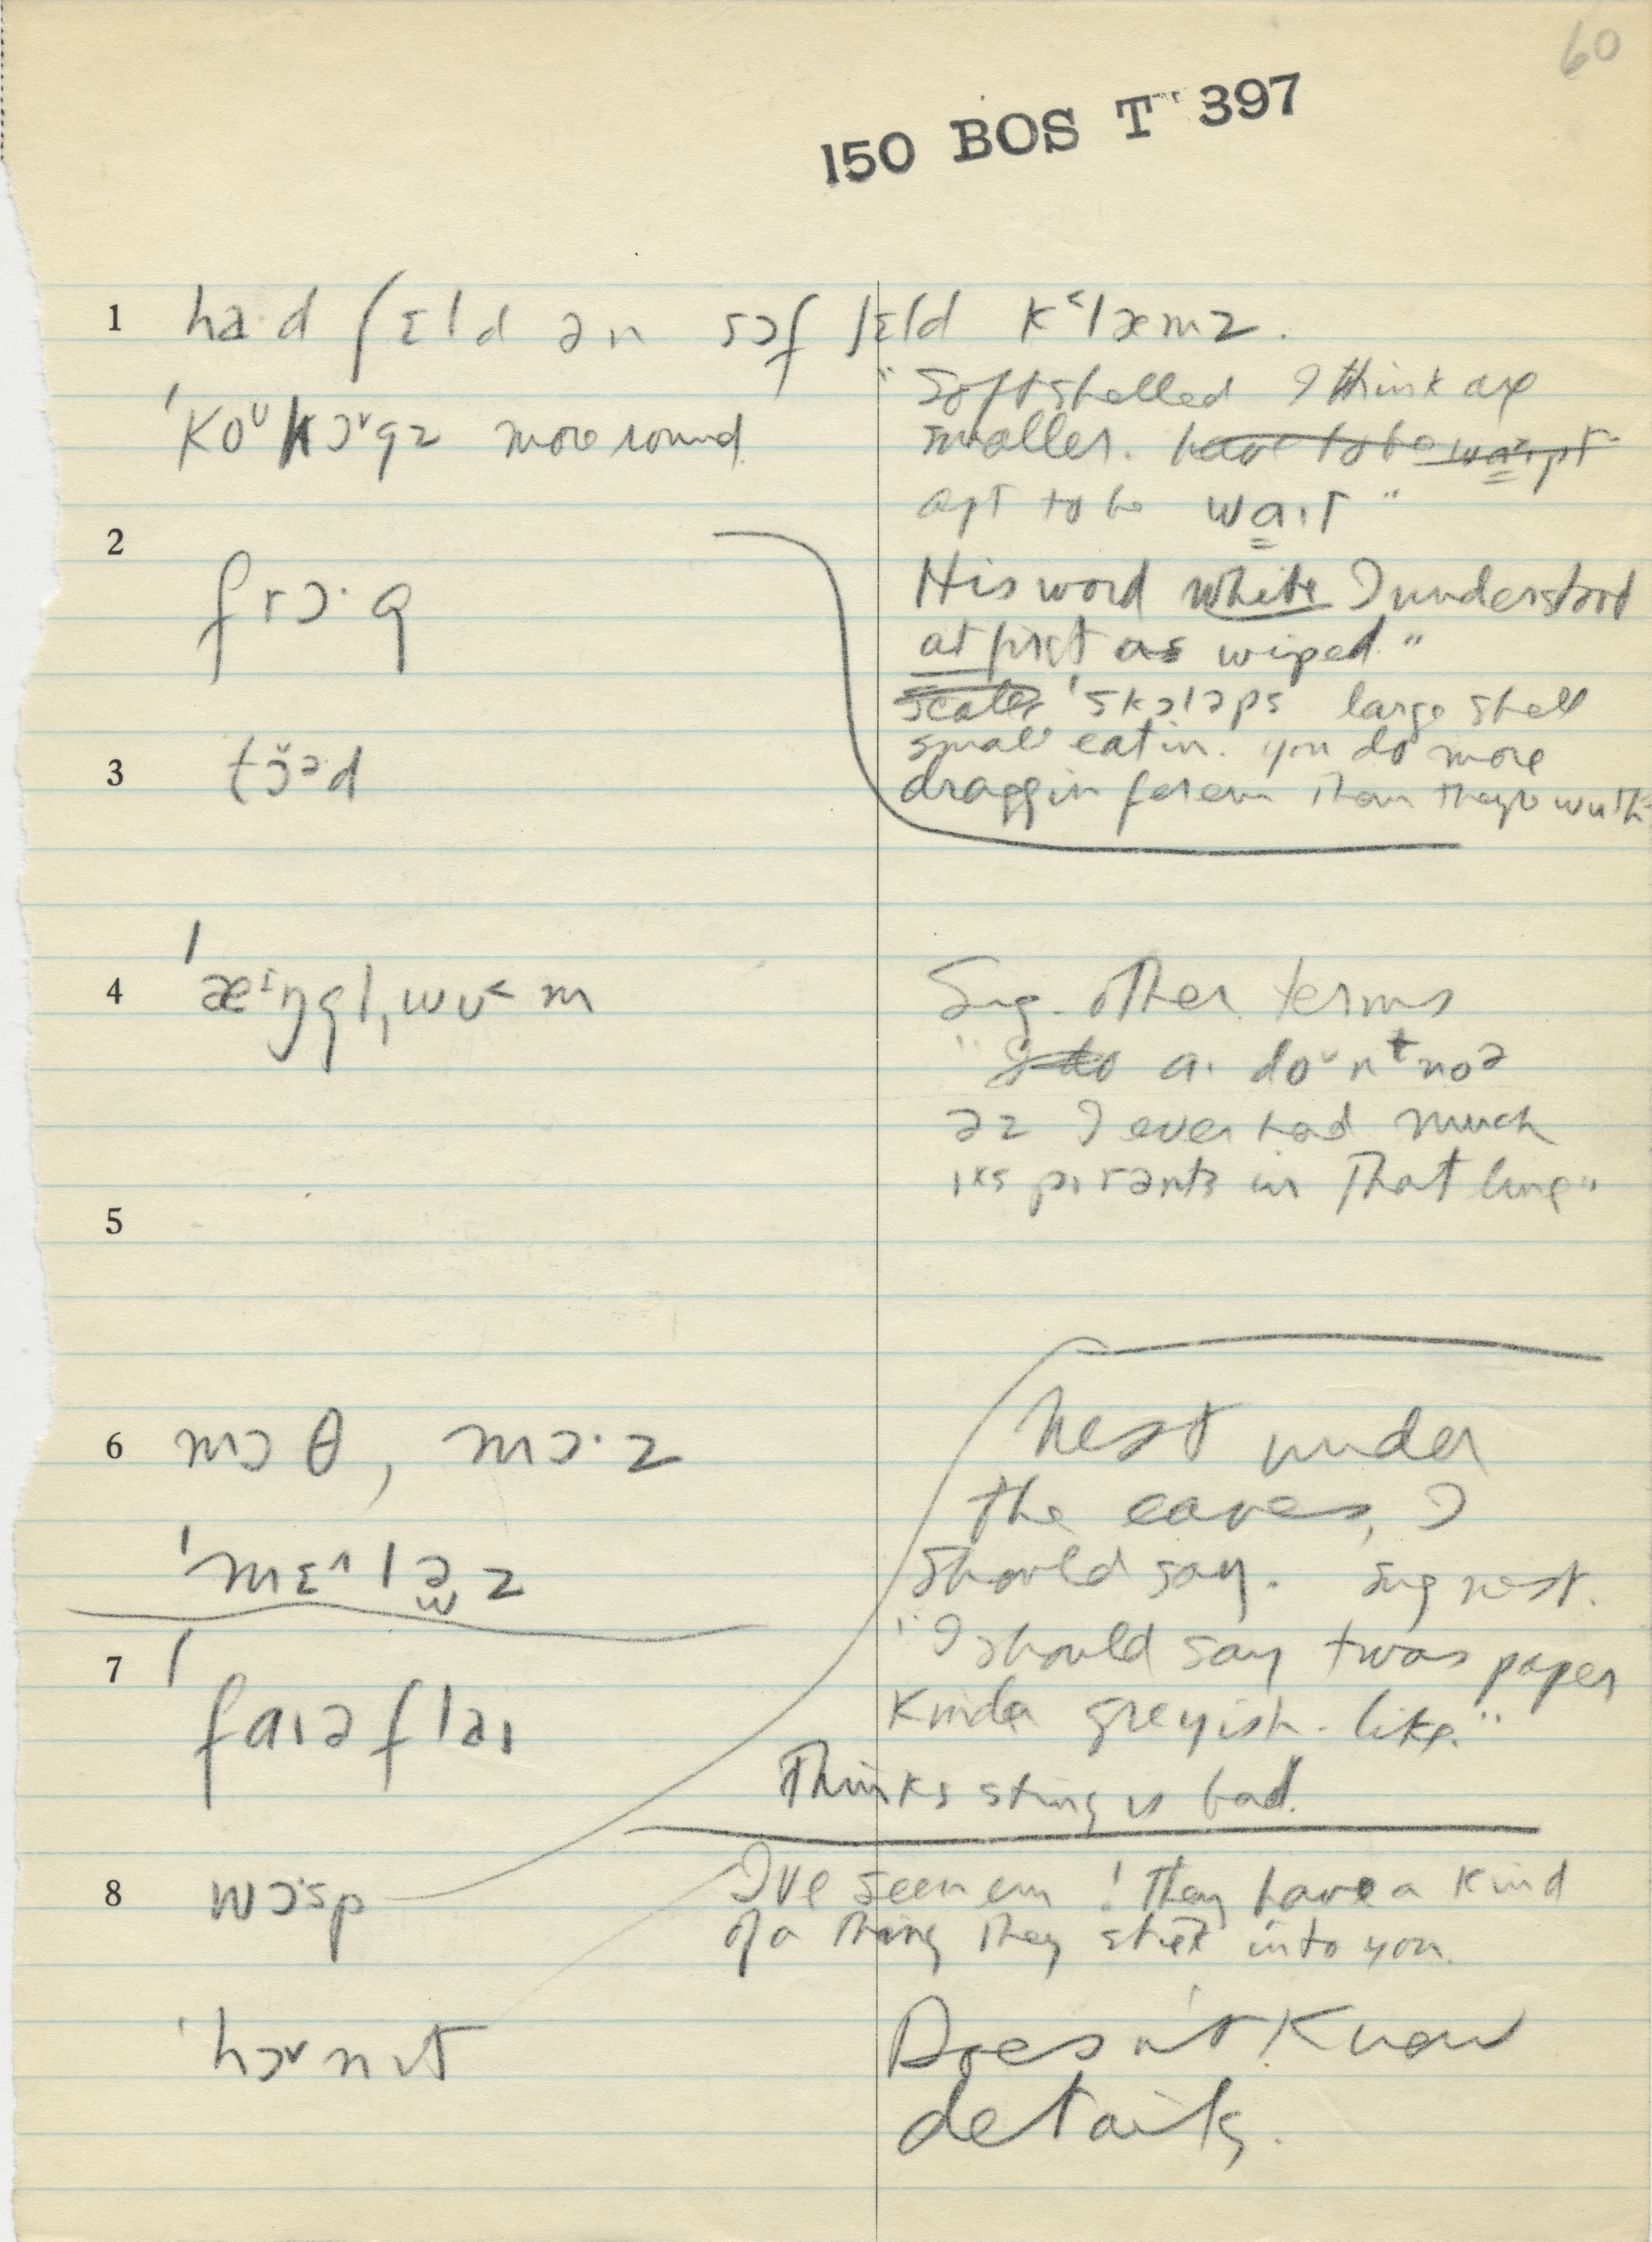 60
150 BOS T 397
1 ha·d ʃɛld ən sɔf ʃɛld k˂læmz.
"Soft shelled I think are
ˈkoᵘhɔˇgz more round
smaller. have to be
apt to be waɪt"
2
frɔ·g
His word white I understood
at first as wiped."
ˈskɔləps large shell
small eatin. you do more
3 tɔ̆ᵊd
draggin for em than they're wuth
4 ˈæᶦŋglˌwʊ˂m
Sug. other terms
" aɪ doˇnᵗnoə
əz I ever had much
in that line"
5
6 mɔθ, mɔ·z
Nest under
the eaves, I
ˈmɛ^ləz
should say. Sug nest.
7 ˈfaɪəflaɪ
"I should say twas paper
kinda greyish-like."
Thinks sting is bad.
8 wɔ·sp
I've seen em! they have a kind
of a thing they stick into you.
ˈhɔˇnɪt
Doesn't know
details.